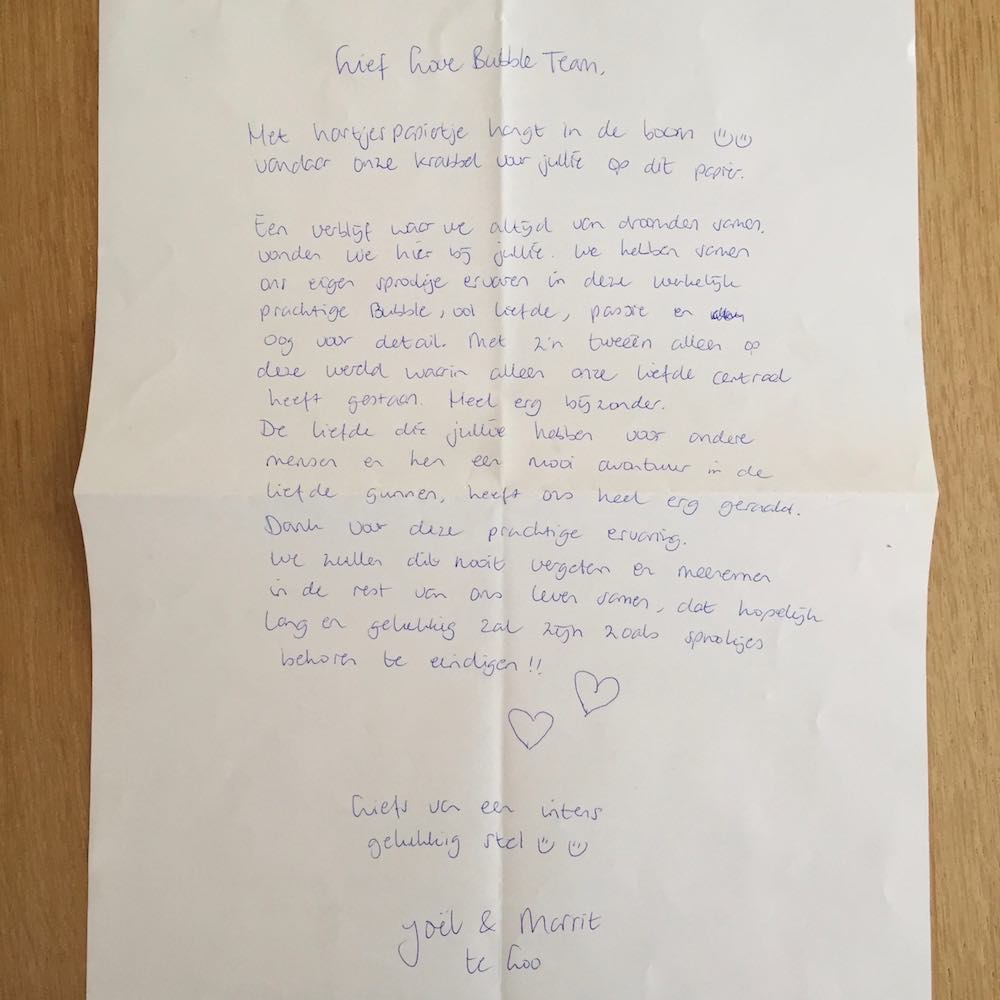 Lief Love Bubble Team,
Het hartjespapiertje hangt in de boom
vandaar onze krabbel voor jullie op dit papier.
Een verblijf waar we altijd van droomden samen,
vonden we hier bij jullie. We hebben samen
ons eigen sprookje ervaren in deze werkelijk
prachtige Bubble, vol liefde, passie en
oog voor detail. Met z'n tweeën alleen op
deze wereld waarin alleen onze liefde centraal
heeft gestaan. Heel erg bijzonder.
De liefde die jullie hebben voor andere
mensen en hen een mooi avontuur in de
liefde gunnen, heeft ons heel erg geraakt.
Dank voor deze prachtige ervaring.
We zullen dit nooit vergeten en meenemen
in de rest van ons leven samen, dat hopelijk
lang en gelukkig zal zijn zoals sprookjes
behoren te eindigen!!
Liefs van een intens
gelukkig stel
Joël & Marrit
te Loo